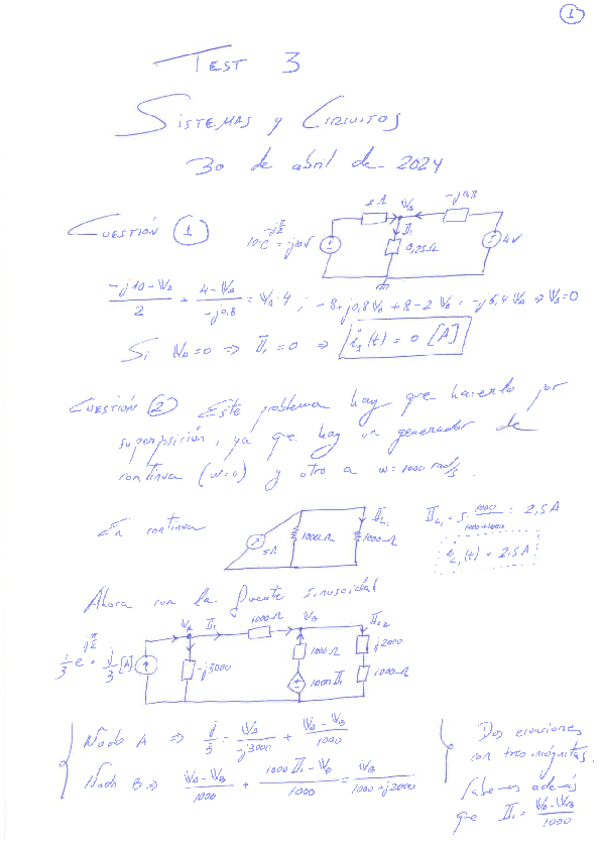 1
TEST 3
SISTEMAS y CIRCUITOS
30 de abril de 2024
CUESTIÓN 1
2Ω
V_A
-j0,8
10·e^{-jπ/2} = -j10V
I_1
0,25Ω
4V
\frac{-j10-V_A}{2} + \frac{4-V_A}{-j0,8} = V_A·4 ; -8+j0,8V_A+8-2V_A = -j6,4V_A ⇒ V_A=0
Si V_A=0 ⇒ I_1=0 ⇒ i_1(t) = 0 [A]
CUESTIÓN 2 Este problema hay que hacerlo por
superposición, ya que hay un generador de
continua (w=0) y otro a w=1000 rad/s.
En continua
5A
1000Ω
I_{L1}
1000Ω
I_{L1} = 5·\frac{1000}{1000+1000} = 2,5A
i_{L1}(t) = 2.5A
Ahora con la fuente sinusoidal
\frac{1}{3}e^{jπ/2} = \frac{j}{3}[A]
V_A
I_1
1000Ω
V_B
I_{L2}
-j3000
1000Ω
1000I_1
j2000
1000Ω
Nodo A ⇒ \frac{j}{3} = \frac{V_A}{-j3000} + \frac{V_A-V_B}{1000}
Nodo B ⇒ \frac{V_A-V_B}{1000} + \frac{1000I_1-V_B}{1000} = \frac{V_B}{1000+j2000}
Dos ecuaciones
con tres incógnitas.
Sabemos además
que I_1 = \frac{V_A-V_B}{1000}